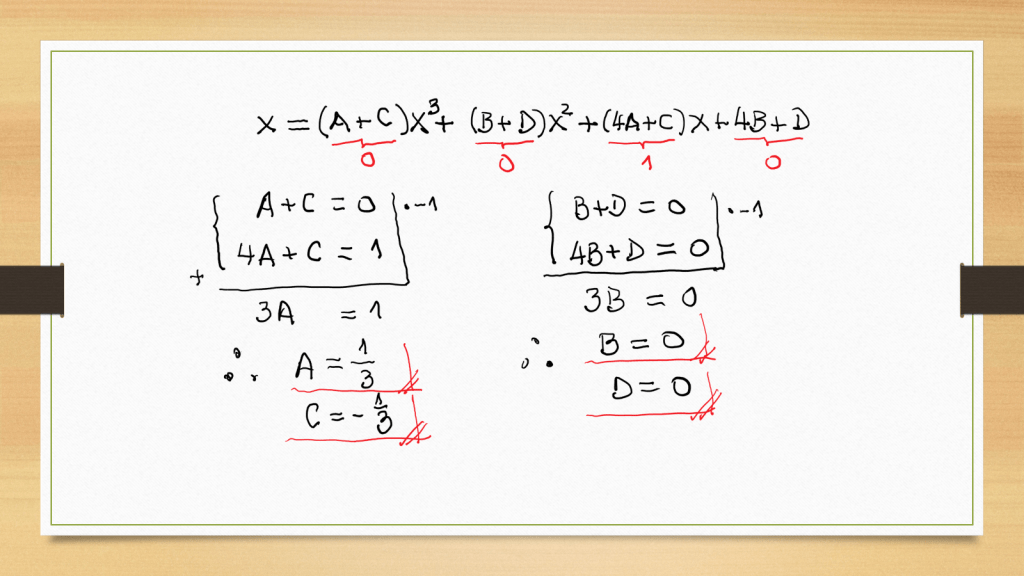 x = (A+C)x³ + (B+D)x² + (4A+C)x + 4B+D
0 0 1 0
A+C = 0 | · -1
4A+C = 1
+
3A = 1
∴ A = 1/3
C = - 1/3
B+D = 0 | · -1
4B+D = 0
3B = 0
∴ B = 0
D = 0